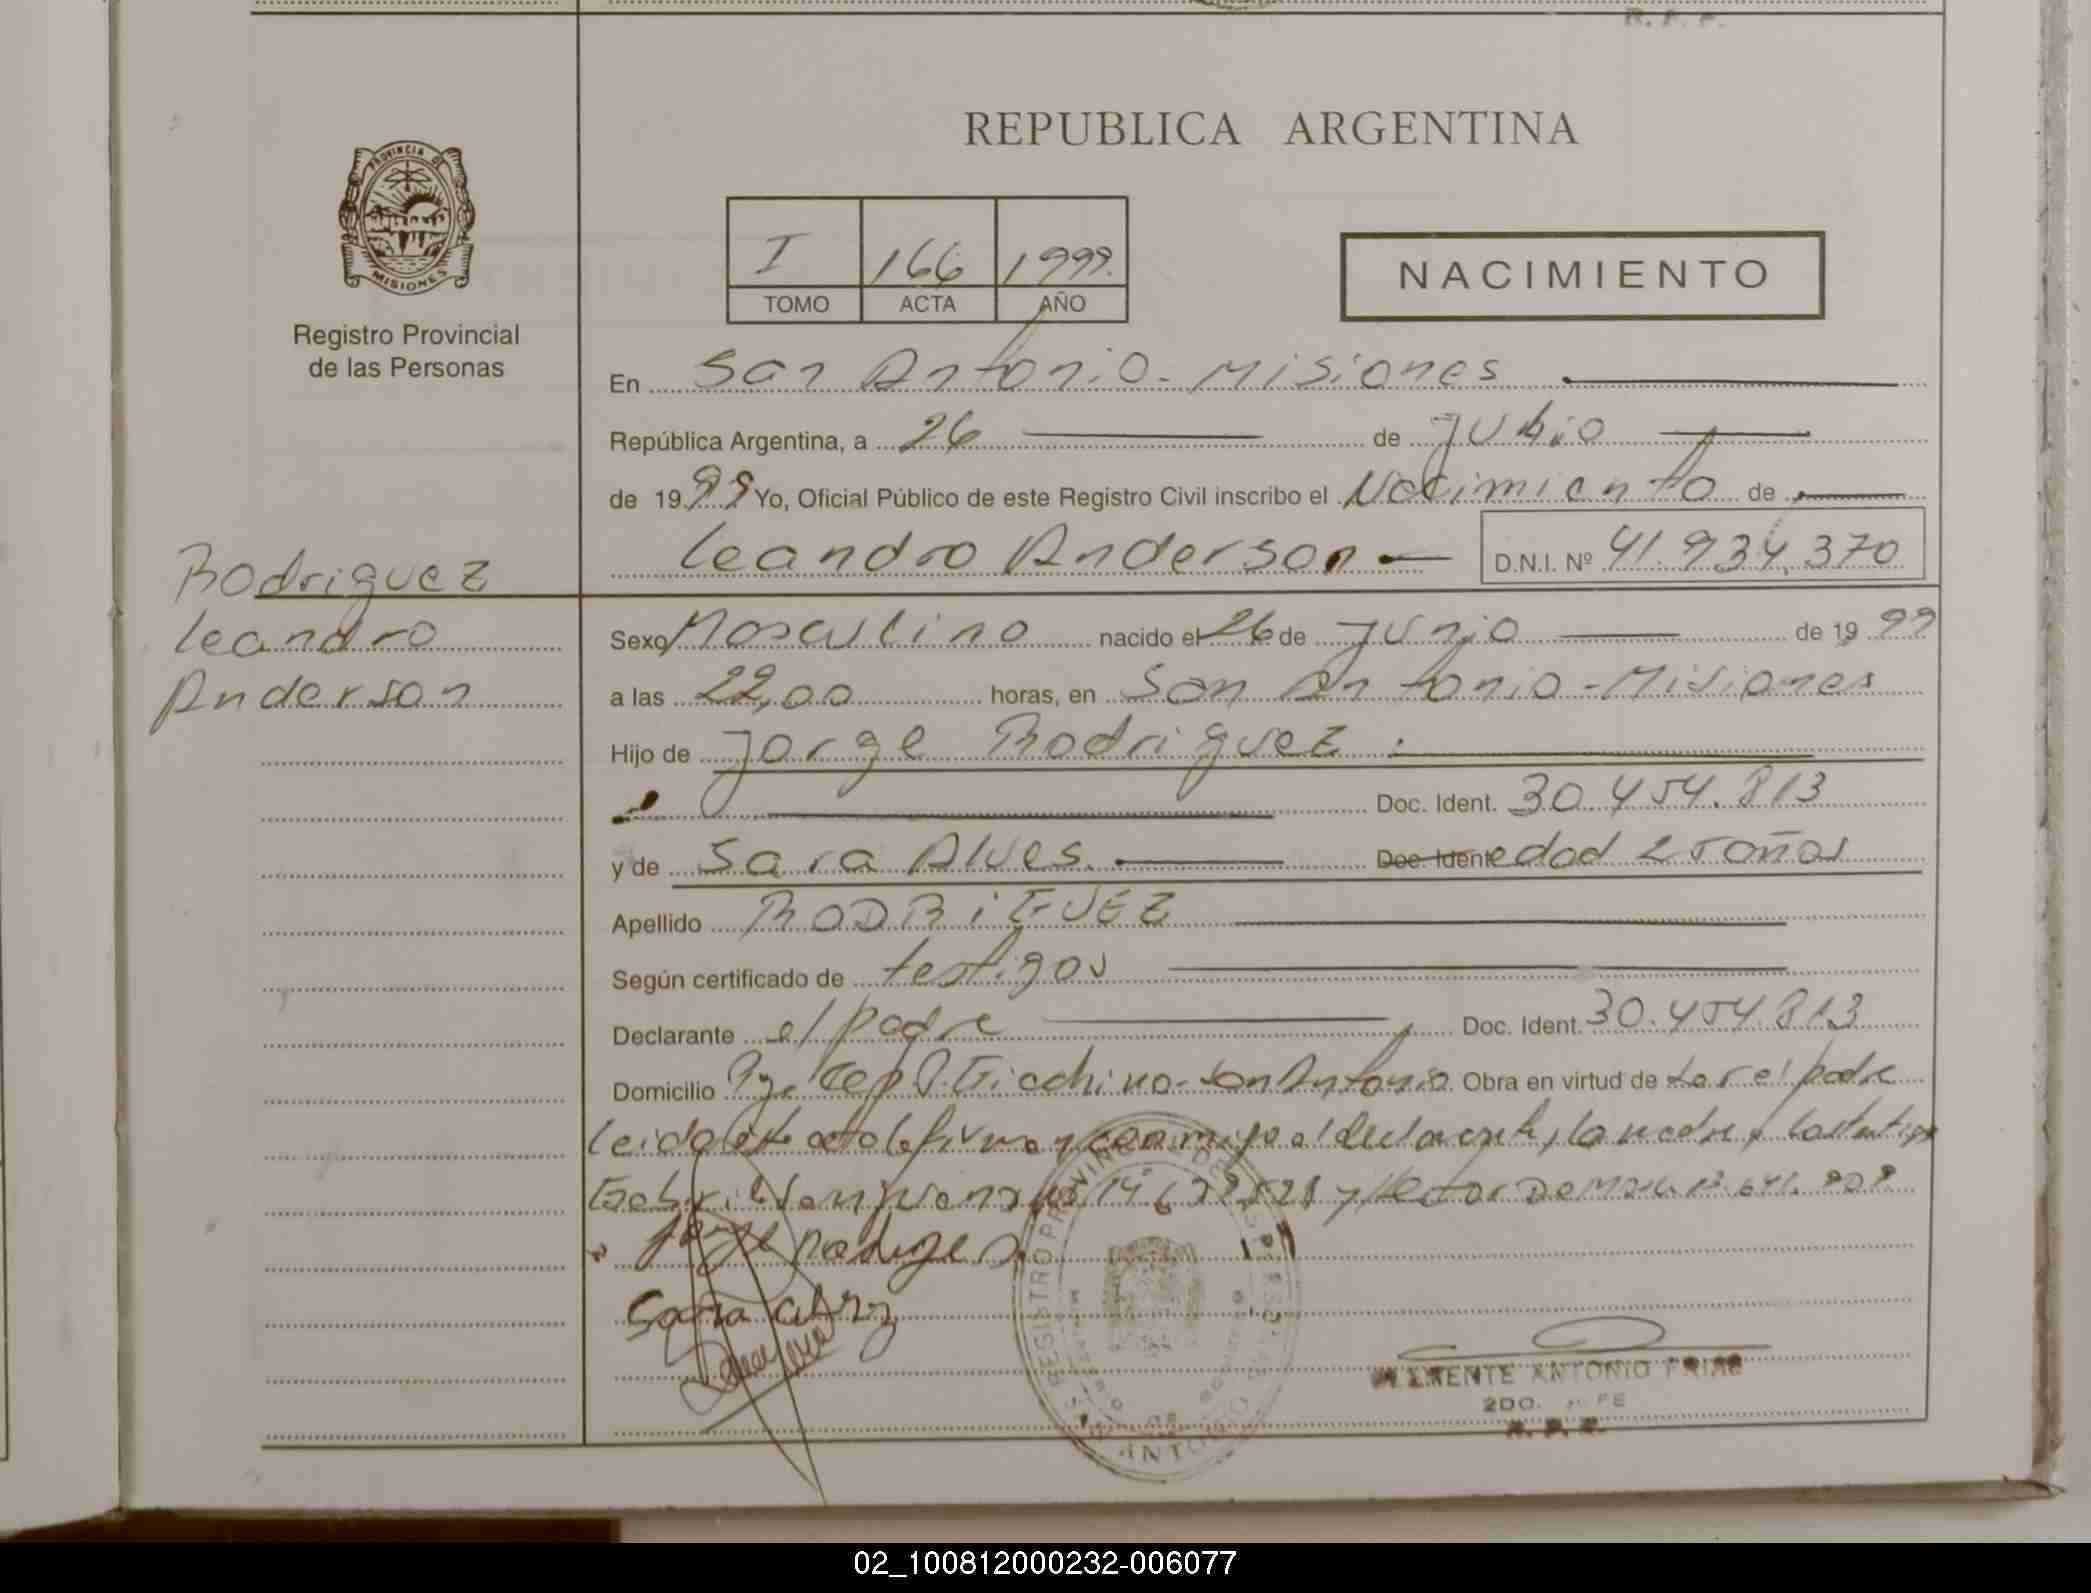 R. P. P.
REPUBLICA ARGENTINA
PROVINCIA DE
MISIONES
Registro Provincial
de las Personas
I 166 1999.
TOMO ACTA AÑO
NACIMIENTO
En San Antonio - Misiones
República Argentina, a 26 de Julio
de 1999 Yo, Oficial Público de este Registro Civil inscribo el Nacimiento de
Leandro Anderson D.N.I. Nº 41.934.370
Rodriguez
Leandro
Anderson
Sexo Masculino nacido el 26 de Junio de 1999
a las 22,00 horas, en San Antonio - Misiones
Hijo de Jorge Rodriguez
Doc. Ident. 30.454.813
y de Sara Alves. Doc. Ident edad 25 años
Apellido RODRIGUEZ
Según certificado de testigos
Declarante el padre Doc. Ident. 30.454.813
Domicilio San Antonio Obra en virtud de ser el padre
Leida este acta la firman conmigo el declarante, la madre y los testigos
Gabriel y Hector
Jorge Rodriguez
Sara
REGISTRO PROVINCIAL DE
CLEMENTE ANTONIO FRIAS
2DO. JEFE
R. P. P.
02_100812000232-006077